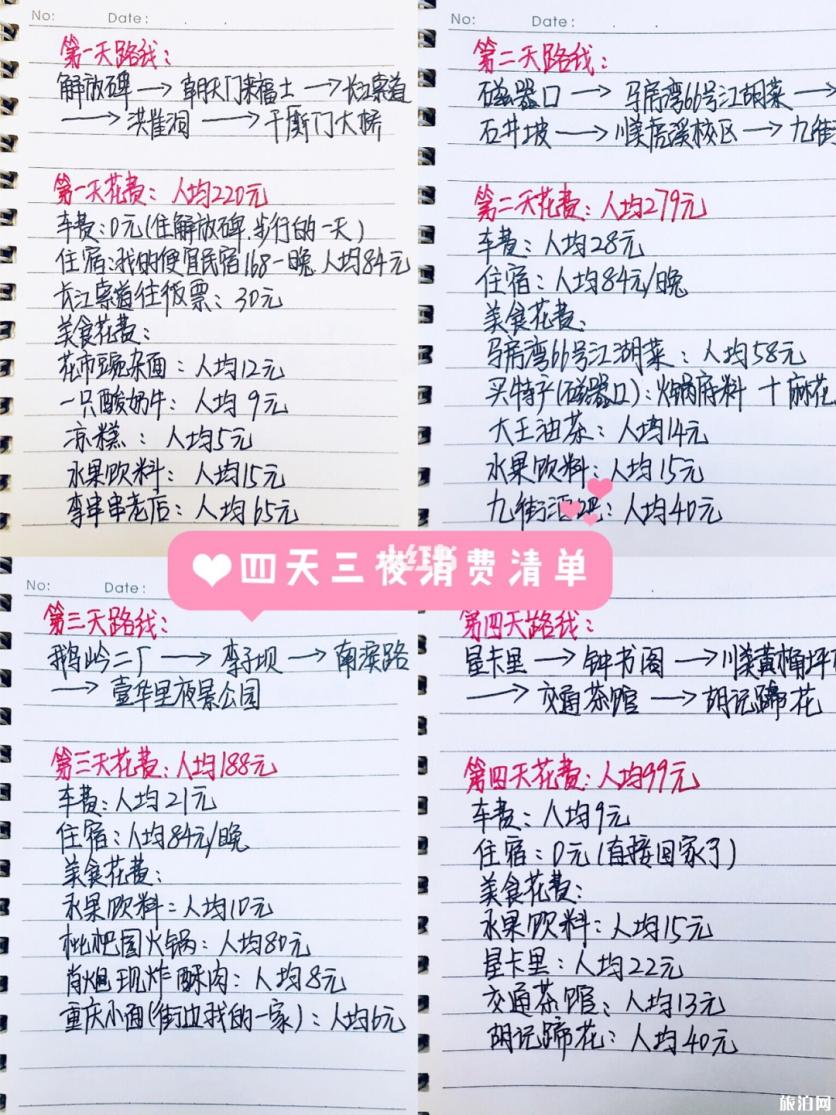 No:
Date:
第一天路线：
解放碑→朝天门来福士→长江索道
→洪崖洞→千厮门大桥
第一天花费：人均220元
车费：0元(住解放碑.步行的一天)
住宿：我的便宜民宿168一晚.人均84元
长江索道往饭票：30元
美食花费：
花市豌杂面：人均12元
一只酸奶牛：人均9元
凉糕：人均5元
水果饮料：人均15元
李串串老店：人均65元
No:
Date:
第二天路线：
磁器口→马房湾66号江湖菜→
石井坡→川美虎溪校区→九街
第二天花费：人均279元
车费：人均28元
住宿：人均84元/晚
美食花费：
马房湾66号江湖菜：人均58元
买特产(磁器口)：火锅底料十麻花
大王油茶：人均14元
水果饮料：人均15元
九街酒吧：人均40元
四天三夜消费清单
小红书
No:
Date:
第三天路线：
鹅岭二厂→李子坝→南滨路
→壹华里夜景公园
第三天花费：人均188元
车费：人均21元
住宿：人均84元/晚
美食花费：
水果饮料：人均10元
枇杷园火锅：人均80元
现炸酥肉：人均8元
重庆小面(街边我的一家)：人均6元
第四天路线：
星卡里→钟书阁→川美黄桷坪
→交通茶馆→胡记蹄花
第四天花费：人均99元
车费：人均9元
住宿：0元(直接回家了)
美食花费：
水果饮料：人均15元
星卡里：人均22元
交通茶馆：人均13元
胡记蹄花：人均40元
旅泊网